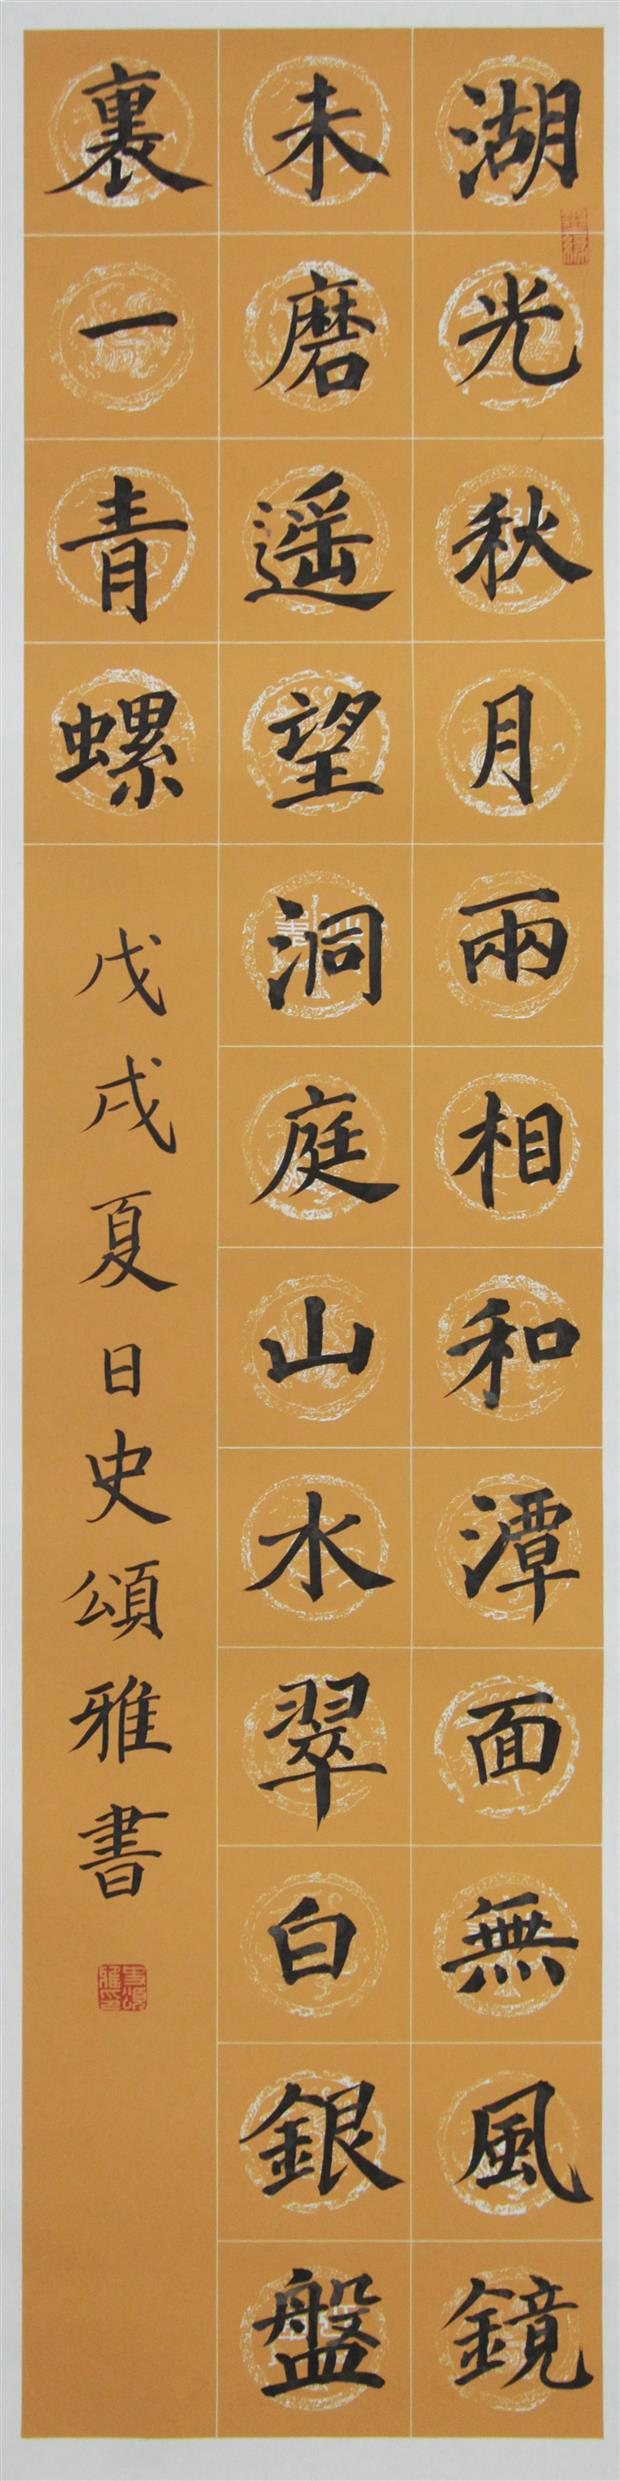 湖光秋月兩相和潭面無風鏡
未磨遥望洞庭山水翠白銀盤
裏一青螺
戊戌夏日史頌雅書